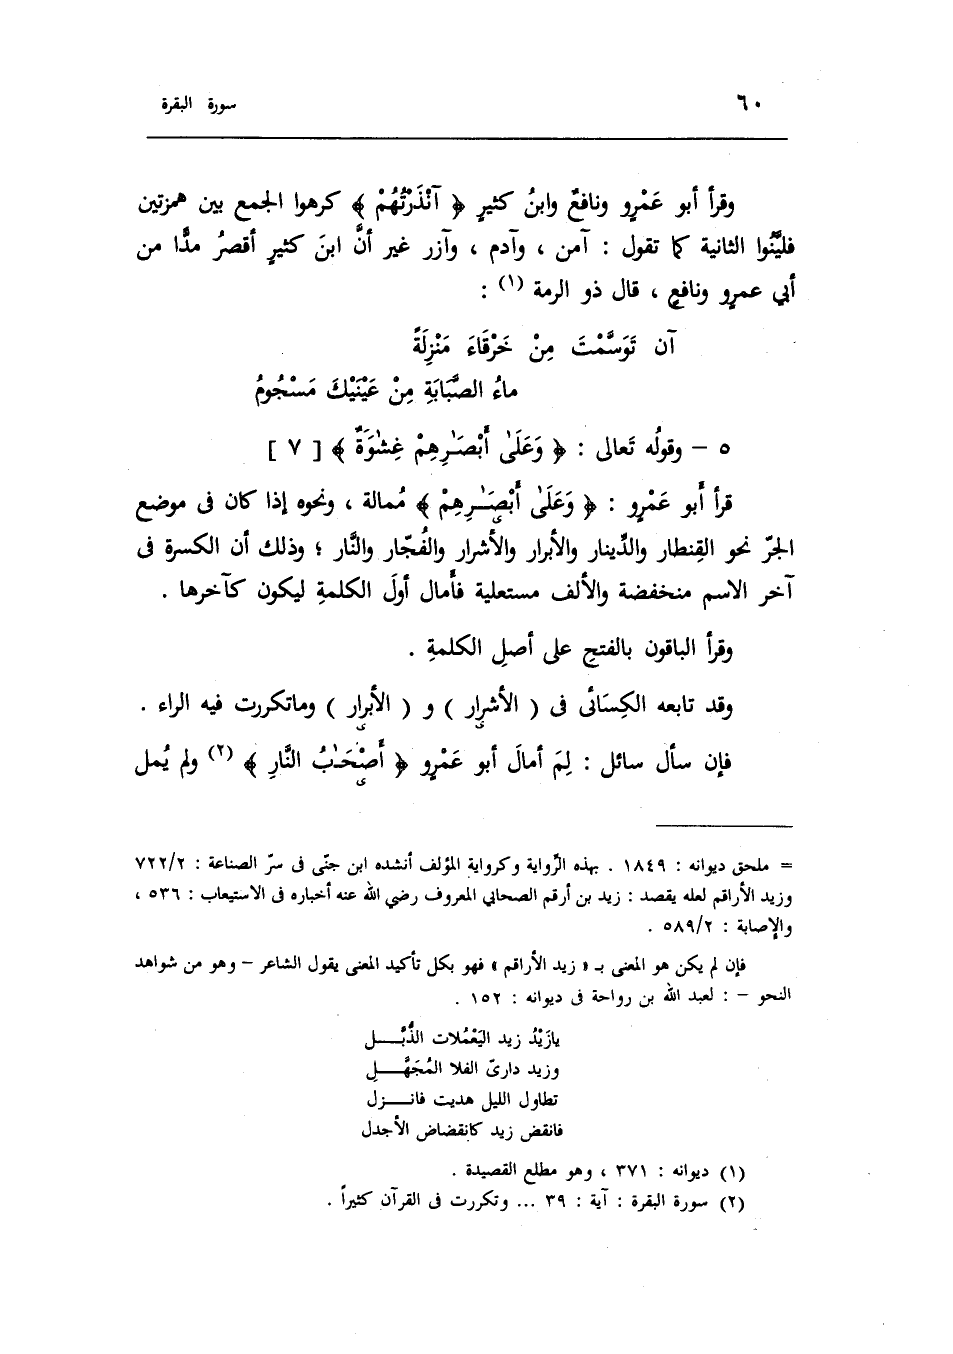 ٦٠ سورة البقرة
وقرأ أبو عَمْرٍو ونافعٌ وابنُ كثيرٍ ﴿ آنْذَرْتُهُمْ ﴾ كرهوا الجمع بين همزتين
فليَّنُوا الثانية كما تقول : آمن ، وآدم ، وآزر غير أنَّ ابنَ كثيرٍ أقصرُ مدًّا من
أبي عمرٍو ونافعٍ ، قال ذو الرمة (١) :
آن تَوَسَّمْتَ مِنْ خَرْقَاءَ مَنْزِلَةً
ماءُ الصَّبَابَةِ مِنْ عَيْنَيْكَ مَسْجُومُ
٥ – وقولُه تَعالى : ﴿ وَعَلَىٰ أَبْصَـٰرِهِمْ غِشَـٰوَةٌ ﴾ [ ٧ ]
قرأ أَبو عَمْرٍو : ﴿ وَعَلَىٰ أَبْصَـٰرِهِمْ ﴾ مُمالة ، ونحوه إذا كان فى موضع
الجرّ نحو القِنطار والدِّينار والأبرار والأشرار والفُجّار والنَّار ؛ وذلك أن الكسرة فى
آخر الاسم منخفضة والألف مستعلية فأَمال أولَ الكلمةِ ليكون كآخرها .
وقرأ الباقون بالفتحِ على أصلِ الكلمةِ .
وقد تابعه الكِسَائى فى ( الأشرار ) و ( الأبرار ) وماتكررت فيه الراء .
فإن سأل سائل : لِمَ أمالَ أبو عَمْرٍو ﴿ أَصْحَـٰبُ النَّارِ ﴾ (٢) ولم يُمل
= ملحق ديوانه : ١٨٤٩ . بهذه الرِّواية وكرواية المؤلف أنشده ابن جنّى فى سرّ الصناعة : ٧٢٢/٢
وزيد الأراقم لعله يقصد : زيد بن أرقم الصحابي المعروف رضي الله عنه أخباره فى الاستيعاب : ٥٣٦ ،
والإصابة : ٥٨٩/٢ .
فإن لم يكن هو المعنى بـ « زيد الأراقم » فهو بكل تأكيد المعنى يقول الشاعر – وهو من شواهد
النحو – : لعبد الله بن رواحة فى ديوانه : ١٥٢ .
يازَيْدُ زيد اليَعْمُلات الذُّبَّـــل
وزيد دارىّ الفلا المُجَهَّـــلِ
تطاول الليل هديت فانـــزل
فانقض زيد كانقضاض الأجدل
(١) ديوانه : ٣٧١ ، وهو مطلع القصيدة .
(٢) سورة البقرة : آية : ٣٩ ... وتكررت فى القرآن كثيراً .